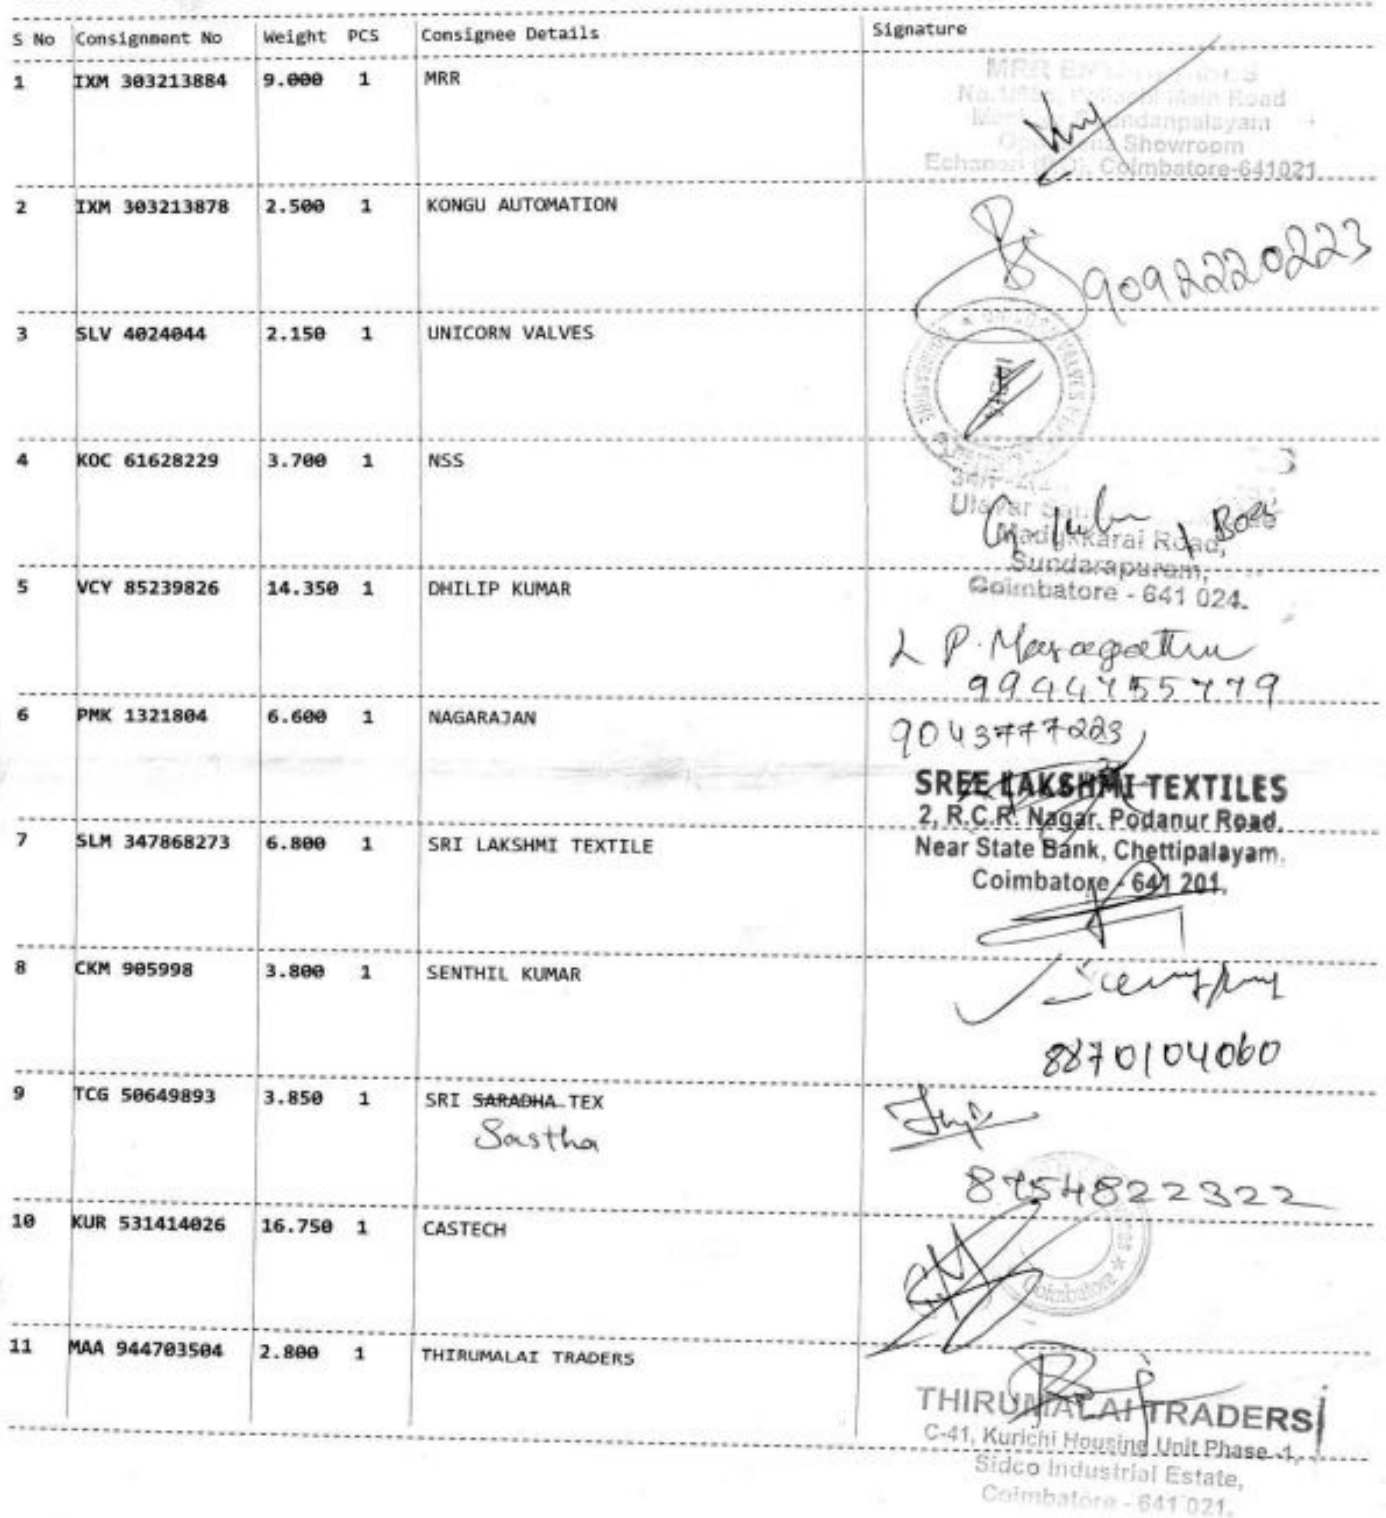 S No Consignment No Weight PCS Consignee Details Signature
1 IXM 303213884 9.000 1 MRR
MRR
Main Road
Showroom
Coimbatore-641021
2 IXM 303213878 2.500 1 KONGU AUTOMATION
9092220223
3 SLV 4024044 2.150 1 UNICORN VALVES
4 KOC 61628229 3.700 1 NSS
Madukkarai Road,
Sundarapuram,
Coimbatore - 641 024.
5 VCY 85239826 14.350 1 DHILIP KUMAR
6 PMK 1321804 6.600 1 NAGARAJAN
9043777223
SREE LAKSHMI TEXTILES
2, R.C.R. Nagar, Podanur Road,
7 SLM 347868273 6.800 1 SRI LAKSHMI TEXTILE
Near State Bank, Chettipalayam,
Coimbatore - 641 201.
8 CKM 905998 3.800 1 SENTHIL KUMAR
8870104060
9 TCG 50649893 3.850 1 SRI SARADHA TEX
Sastha
8754822322
10 KUR 531414026 16.750 1 CASTECH
Coimbatore
11 MAA 944703504 2.800 1 THIRUMALAI TRADERS
THIRUMALAI TRADERS
C-41, Kurichi Housing Unit Phase -1,
Sidco Industrial Estate,
Coimbatore - 641 021.